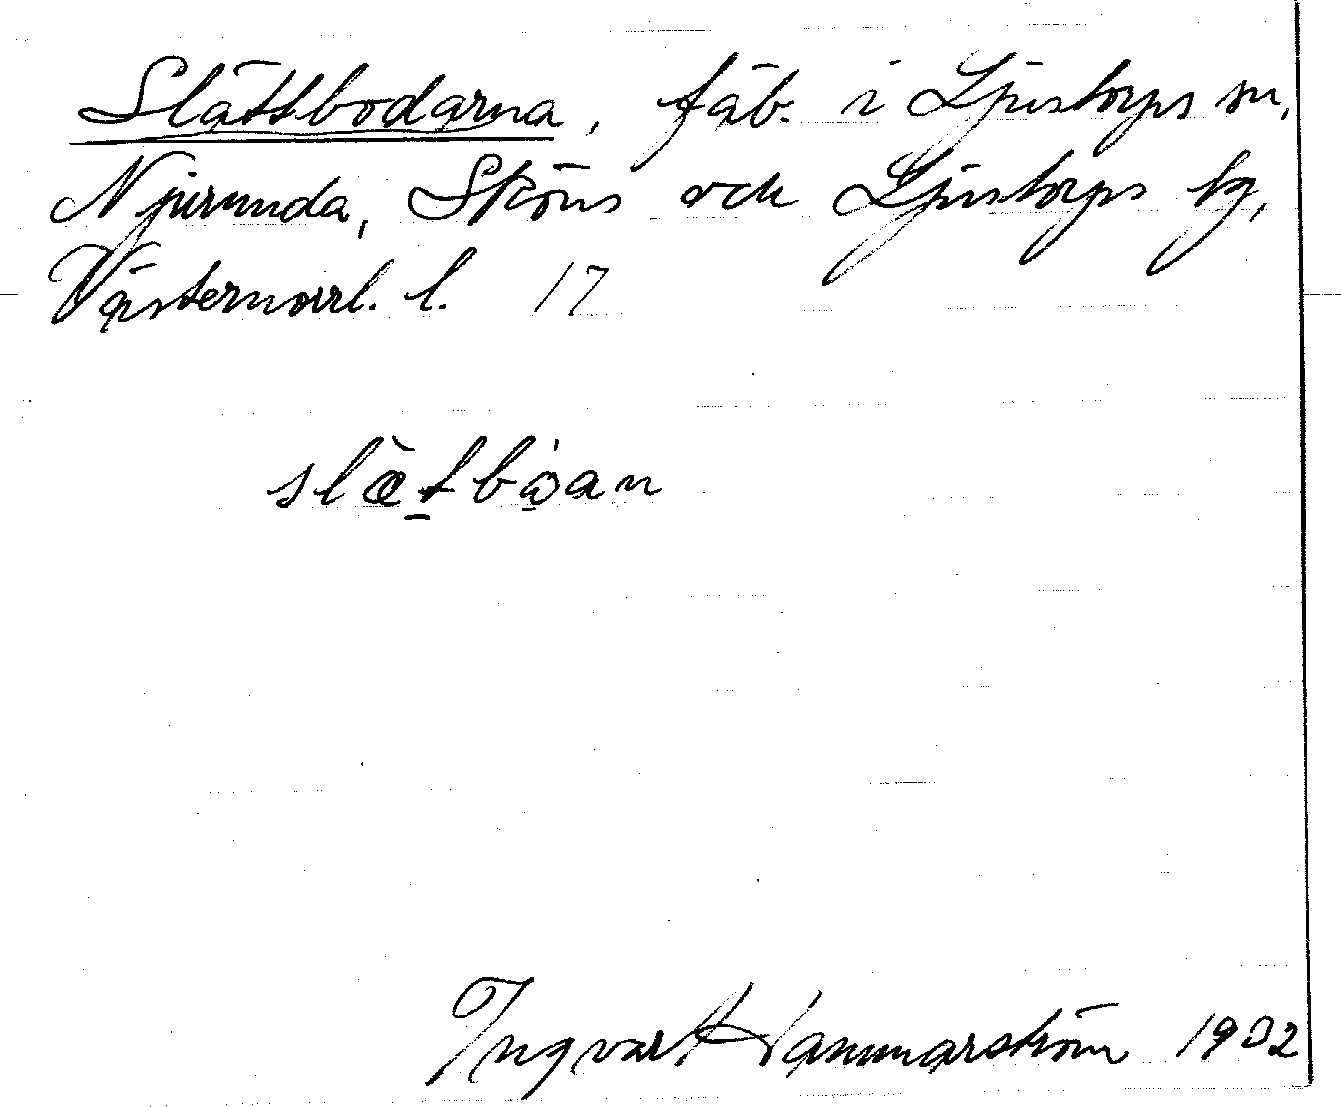 Slättbodarna, fäb. i Ljustorps sn,
Njurunda, Sköns och Ljustorps tg,
Västernorrl. l. 17
slæ̀tbòan
Ingvar Hammarström 1932